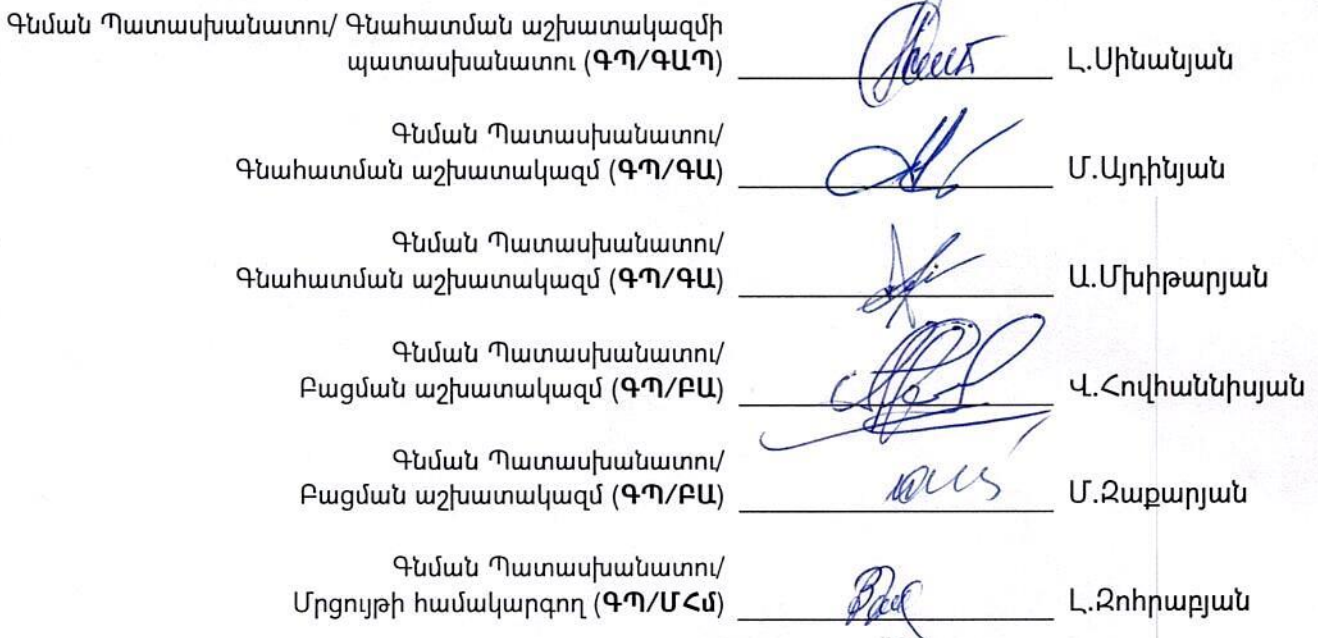 Գնման Պատասխանատու/ Գնահատման աշխատակազմի
պատասխանատու (ԳՊ/ԳԱՊ) Լ.Սինանյան
Գնման Պատասխանատու/
Գնահատման աշխատակազմ (ԳՊ/ԳԱ) Մ.Այդինյան
Գնման Պատասխանատու/
Գնահատման աշխատակազմ (ԳՊ/ԳԱ) Ա.Մխիթարյան
Գնման Պատասխանատու/
Բացման աշխատակազմ (ԳՊ/ԲԱ) Վ.Հովհաննիսյան
Գնման Պատասխանատու/
Բացման աշխատակազմ (ԳՊ/ԲԱ) Մ.Զաքարյան
Գնման Պատասխանատու/
Մրցույթի համակարգող (ԳՊ/ՄՀմ) Լ.Զոհրաբյան